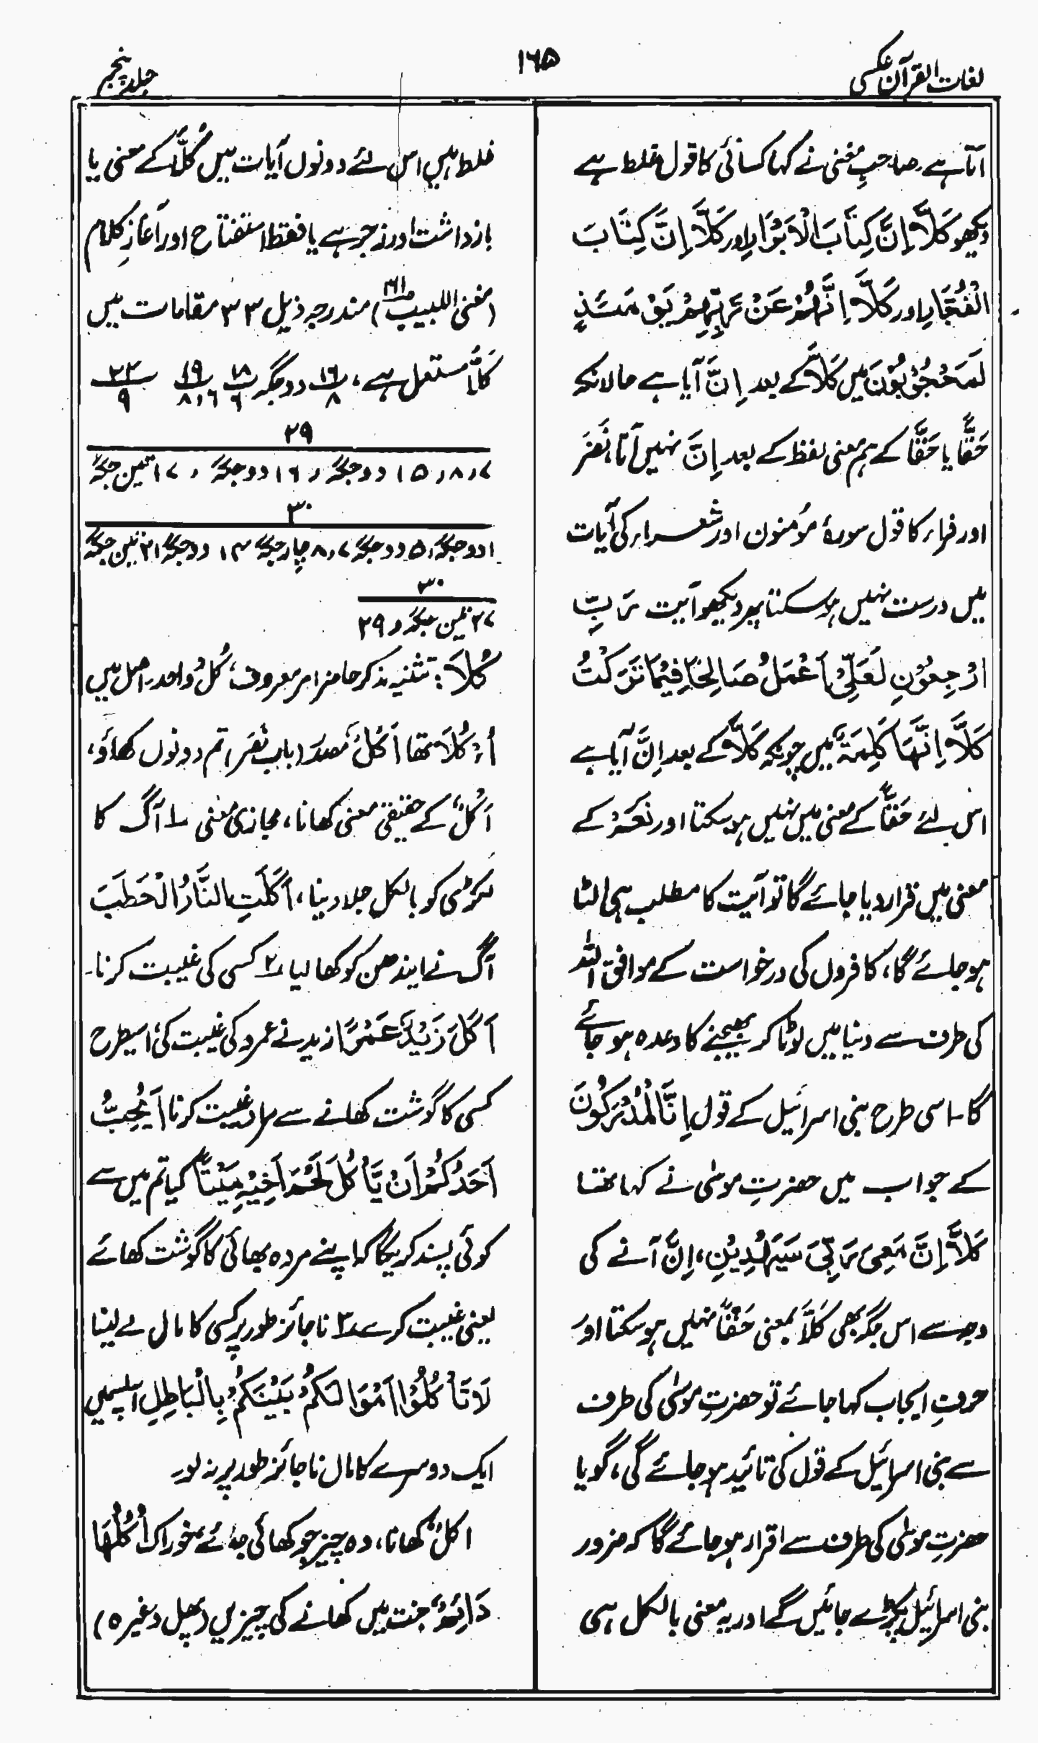 لغات القرآن عکسی
۱۶۵
جلد پنجم
آتا ہے۔ صاحبِ مغنی نے کہا کسائی کا قول غلط ہے
دیکھو كَلَّا إِنَّ كِتَابَ الْأَبْرَارِ اور كَلَّا إِنَّ كِتَابَ
الْفُجَّارِ اور كَلَّا إِنَّهُمْ عَنْ رَبِّهِمْ يَوْمَئِذٍ
لَمَحْجُوبُونَ میں كَلَّا کے بعد إِنَّ آیا ہے حالانکہ
حَقًّا یا حَقًّا کے ہم معنی لفظ کے بعد إِنَّ نہیں آتا، نَضر
اور فراء کا قول سورۂ مؤمنون اور شعراء کی آیات
میں درست نہیں ہو سکتا پھر دیکھو آیت رَبِّ
ارْجِعُوْنِ لَعَلِّيْ أَعْمَلُ صَالِحًا فِيْمَا تَرَكْتُ
كَلَّا إِنَّهَا كَلِمَةٌ میں چونکہ كَلَّا کے بعد إِنَّ آیا ہے
اس لئے حَقًّا کے معنی میں نہیں ہو سکتا اور نَعَمْ کے
معنی میں قرار دیا جائے گا تو آیت کا مطلب ہی الٹا
ہو جائے گا، کافروں کی درخواست کے موافق اللہ
کی طرف سے دنیا میں لوٹا کر بھیجنے کا وعدہ ہو جائے
گا۔ اسی طرح بنی اسرائیل کے قول إِنَّا لَمُدْرَكُوْنَ
کے جواب میں حضرتِ موسٰی نے کہا تھا
كَلَّا إِنَّ مَعِيَ رَبِّيْ سَيَهْدِيْنِ، إِنَّ آنے کی
وجہ سے اس جگہ بھی كَلَّا بمعنی حَقًّا نہیں ہو سکتا اور
حرفِ ایجاب کہا جائے تو حضرتِ موسٰی کی طرف
سے بنی اسرائیل کے قول کی تائید ہو جائے گی، گویا
حضرتِ موسٰی کی طرف سے اقرار ہو جائے گا کہ ضرور
بنی اسرائیل پکڑے جائیں گے اور یہ معنی بالکل ہی
غلط ہیں اس لئے دونوں آیات میں كَلَّا کے معنی یا
بازداشت اور زجر ہے یا فقط استفتاح اور آغازِ کلام
(مغنی اللبیب ۱۶۱) مندرجہ ذیل ۳۳ مقامات میں
كَلَّا مستعمل ہے، ۱۶/۸ دو جگہ ۱۸/۶ ۱۹/۸،۶ ۲۲/۹
۲۹
۷، ۸، ۱۵ دو جگہ، ۱۶ دو جگہ، ۱۷ تین جگہ
۳۰
۱ دو جگہ، ۵ دو جگہ، ۷، ۸ چار جگہ ۱۳ دو جگہ ۲۱ تین جگہ
۳۰
۲۷ تین جگہ و ۲۹
كُلَا: تثنیہ مذکر حاضر امر معروف، كُلْ واحد۔ اصل میں
أُؤْكُلَا تھا أَكْلٌ مصدر (باب نَصَرَ) تم دونوں کھاؤ،
أَكْلٌ کے حقیقی معنی کھانا، مجازی معنی ۱ آگ کا
لکڑی کو بالکل جلا دینا، أَكَلَتِ النَّارُ الْحَطَبَ
آگ نے ایندھن کو کھا لیا ۲ کسی کی غیبت کرنا۔
أَكَلَ زَيْدٌ عَمْرًا زید نے عمرو کی غیبت کی، اسی طرح
کسی کا گوشت کھانے سے مراد غیبت کرنا أَيُحِبُّ
أَحَدُكُمْ أَنْ يَّأْكُلَ لَحْمَ أَخِيْهِ مَيْتًا کیا تم میں سے
کوئی پسند کریگا کہ اپنے مردہ بھائی کا گوشت کھائے
یعنی غیبت کرے ۳ ناجائز طور پر کسی کا مال لے لینا
لَا تَأْكُلُوْا أَمْوَالَكُمْ بَيْنَكُمْ بِالْبَاطِلِ آپسمیں
ایک دوسرے کا مال ناجائز طور پر نہ لو۔
أُكُلٌ کھانا، وہ چیز جو کھائی جائے، خوراک أُكُلُهَا
دَائِمٌ جنت میں کھانے کی چیزیں (پھل وغیرہ)